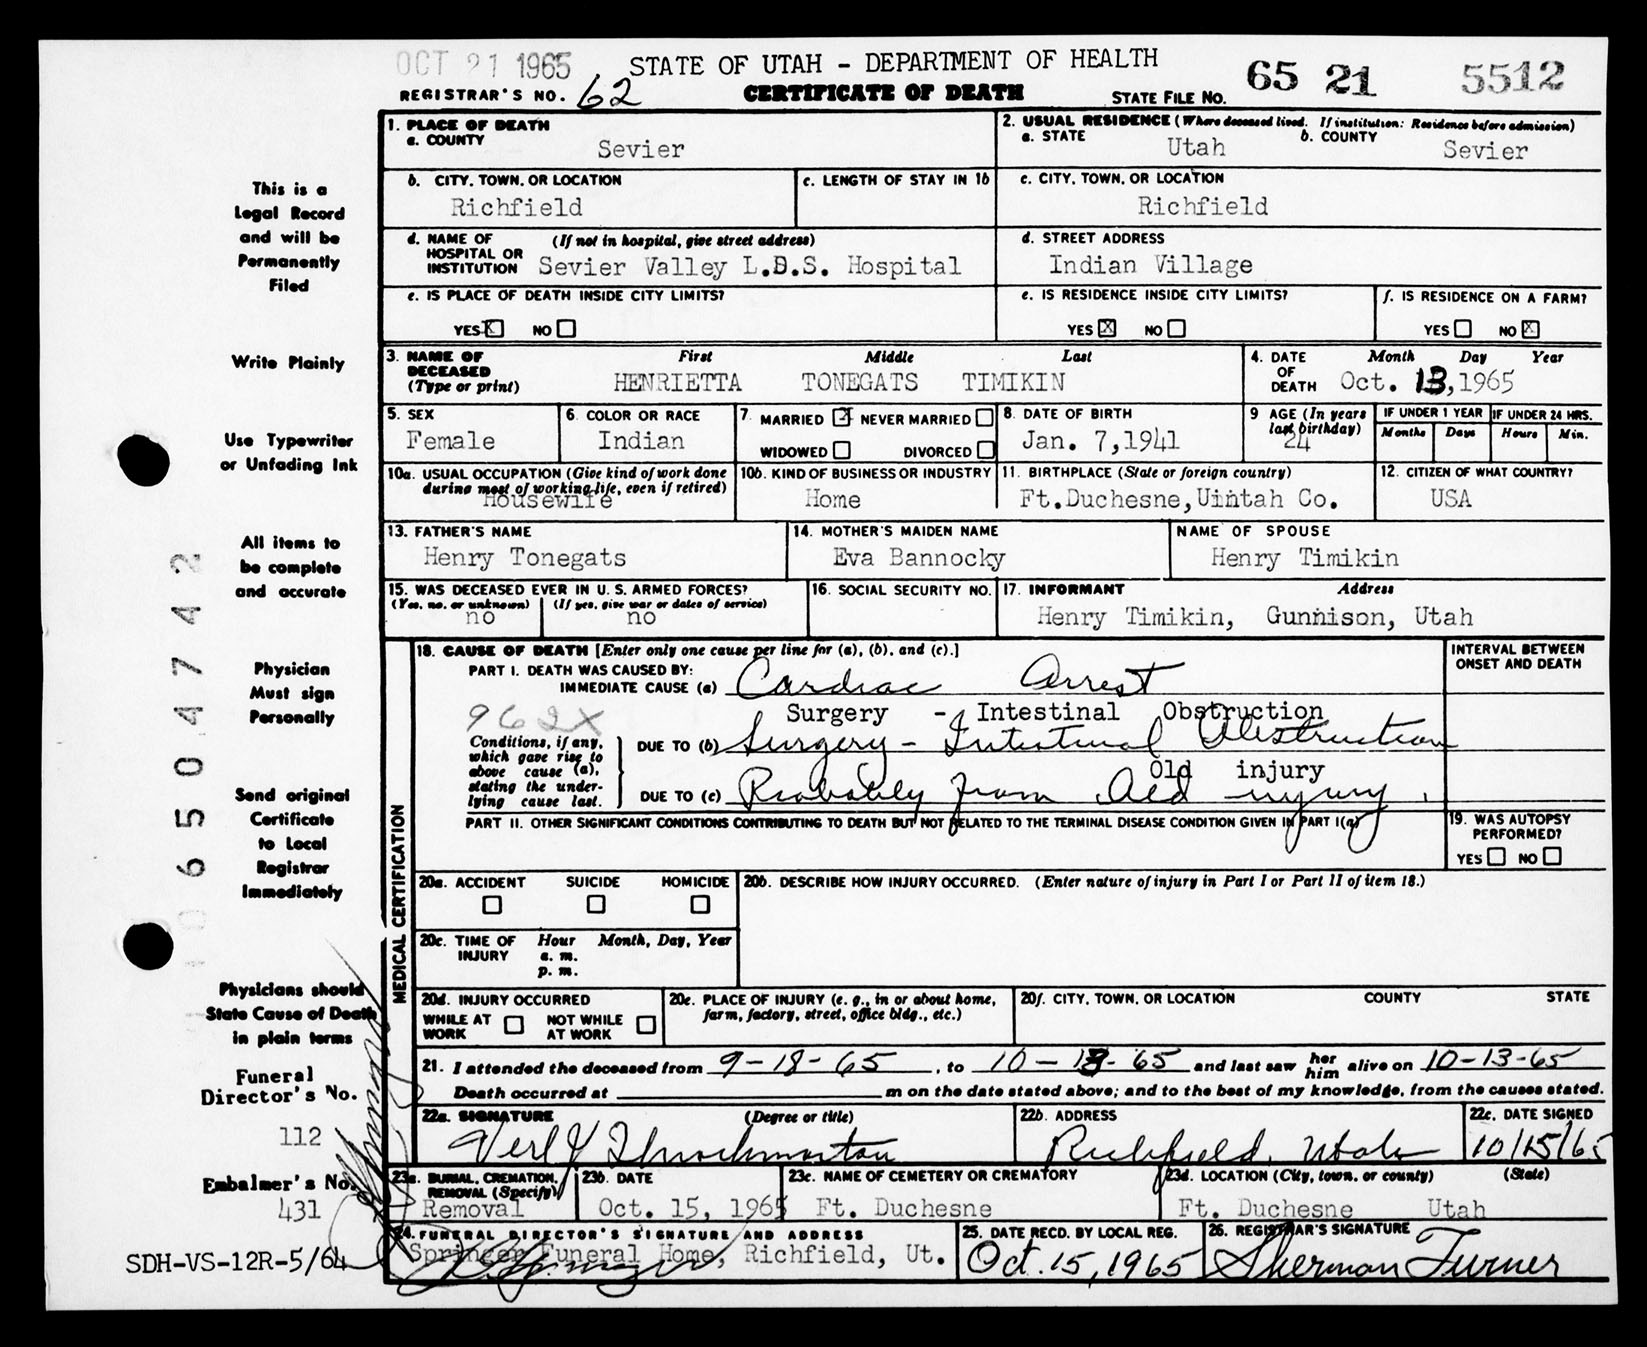 OCT 21 1965
STATE OF UTAH - DEPARTMENT OF HEALTH
65 21 5512
REGISTRAR'S NO. 62
CERTIFICATE OF DEATH
STATE FILE NO.
This is a
Legal Record
and will be
Permanently
Filed
Write Plainly
Use Typewriter
or Unfading Ink
All items to
be complete
and accurate
Physician
Must sign
Personally
Send original
Certificate
to Local
Registrar
Immediately
Physicians should
State Cause of Death
in plain terms
Funeral
Director's No.
112
Embalmer's No.
431
SDH-VS-12R-5/64
06504742
1. PLACE OF DEATH
a. COUNTY
Sevier
2. USUAL RESIDENCE (Where deceased lived. If institution: Residence before admission)
a. STATE Utah b. COUNTY Sevier
b. CITY, TOWN, OR LOCATION
Richfield
c. LENGTH OF STAY IN 1b
c. CITY, TOWN, OR LOCATION
Richfield
d. NAME OF HOSPITAL OR INSTITUTION (If not in hospital, give street address)
Sevier Valley L.D.S. Hospital
d. STREET ADDRESS
Indian Village
e. IS PLACE OF DEATH INSIDE CITY LIMITS?
YES X NO
e. IS RESIDENCE INSIDE CITY LIMITS?
YES X NO
f. IS RESIDENCE ON A FARM?
YES NO X
3. NAME OF DECEASED (Type or print)
First Middle Last
HENRIETTA TONEGATS TIMIKIN
4. DATE OF DEATH Month Day Year
Oct. 13, 1965
5. SEX
Female
6. COLOR OR RACE
Indian
7. MARRIED X NEVER MARRIED
WIDOWED DIVORCED
8. DATE OF BIRTH
Jan. 7, 1941
9 AGE (In years last birthday)
24
IF UNDER 1 YEAR
Months Days
IF UNDER 24 HRS.
Hours Min.
10a. USUAL OCCUPATION (Give kind of work done during most of working life, even if retired)
Housewife
10b. KIND OF BUSINESS OR INDUSTRY
Home
11. BIRTHPLACE (State or foreign country)
Ft.Duchesne, Uintah Co.
12. CITIZEN OF WHAT COUNTRY?
USA
13. FATHER'S NAME
Henry Tonegats
14. MOTHER'S MAIDEN NAME
Eva Bannocky
NAME OF SPOUSE
Henry Timikin
15. WAS DECEASED EVER IN U.S. ARMED FORCES?
(Yes, no, or unknown) (If yes, give war or dates of service)
no no
16. SOCIAL SECURITY NO.
17. INFORMANT Address
Henry Timikin, Gunnison, Utah
MEDICAL CERTIFICATION
18. CAUSE OF DEATH [Enter only one cause per line for (a), (b), and (c).]
INTERVAL BETWEEN ONSET AND DEATH
PART I. DEATH WAS CAUSED BY:
IMMEDIATE CAUSE (a) Cardiac Arrest
962X
Surgery - Intestinal Obstruction
Conditions, if any, which gave rise to above cause (a), stating the underlying cause last.
DUE TO (b) Surgery - Intestinal Obstruction
Old injury
DUE TO (c) Probably from Old injury.
PART II. OTHER SIGNIFICANT CONDITIONS CONTRIBUTING TO DEATH BUT NOT RELATED TO THE TERMINAL DISEASE CONDITION GIVEN IN PART I(a)
19. WAS AUTOPSY PERFORMED?
YES NO
20a. ACCIDENT SUICIDE HOMICIDE
20b. DESCRIBE HOW INJURY OCCURRED. (Enter nature of injury in Part I or Part II of item 18.)
20c. TIME OF INJURY Hour Month, Day, Year
a. m.
p. m.
20d. INJURY OCCURRED
WHILE AT WORK NOT WHILE AT WORK
20e. PLACE OF INJURY (e. g., in or about home, farm, factory, street, office bldg., etc.)
20f. CITY, TOWN, OR LOCATION COUNTY STATE
21. I attended the deceased from 9-18-65, to 10-13-65 and last saw her him alive on 10-13-65
Death occurred at m on the date stated above; and to the best of my knowledge, from the causes stated.
22a. SIGNATURE (Degree or title)
Verl Y Throckmorton
22b. ADDRESS
Richfield, Utah
22c. DATE SIGNED
10/15/65
23a. BURIAL, CREMATION, REMOVAL (Specify)
Removal
23b. DATE
Oct. 15, 1965
23c. NAME OF CEMETERY OR CREMATORY
Ft. Duchesne
23d. LOCATION (City, town, or county) (State)
Ft. Duchesne Utah
24. FUNERAL DIRECTOR'S SIGNATURE AND ADDRESS
Springer Funeral Home, Richfield, Ut.
25. DATE RECD. BY LOCAL REG.
Oct. 15, 1965
26. REGISTRAR'S SIGNATURE
Sherman Turner